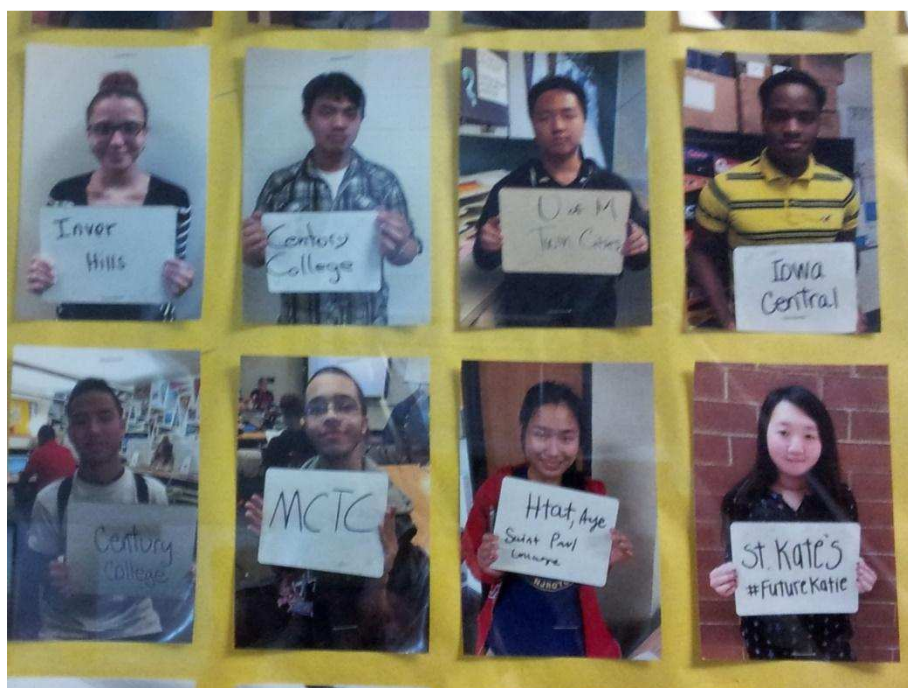 Inver
Hills
Century
College
U of M
Twin Cities
Iowa
Central
Century
College
MCTC
Htat, Aye
Saint Paul
College
NJROTC
St. Kate's
#FutureKatie